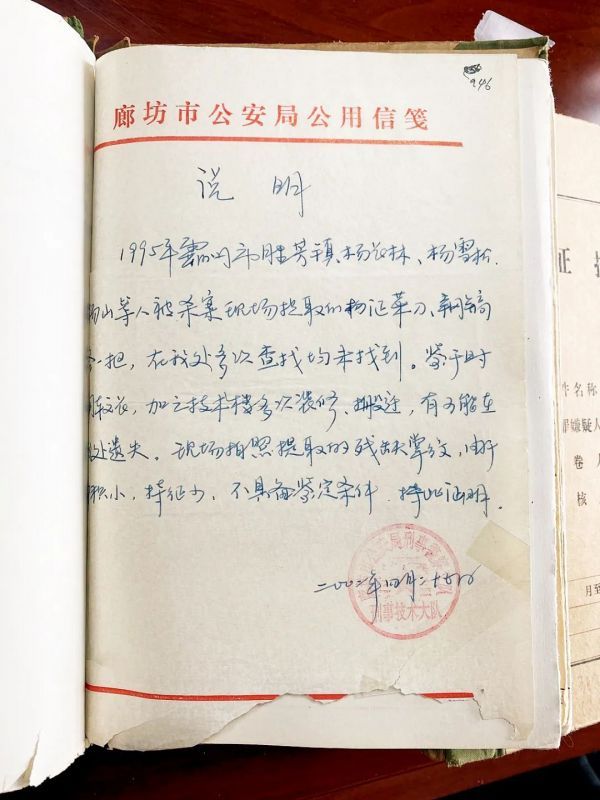 946
廊坊市公安局公用信笺
说 明
1995年霸州市胜芳镇杨林、杨雪松、
杨山等人被杀案现场提取的物证菜刀、钢镐
各一把,在我处多次查找均未找到。鉴于时
间较长,加之技术楼多次装修、搬迁,有可能在
我处遗失。现场拍照提取的残缺掌纹,由于
面积小,特征少,不具备鉴定条件,特此证明。
二00二年四月二十日
公安局刑事警察
刑事技术大队
证
件名称
罪嫌疑人
卷
核
月至